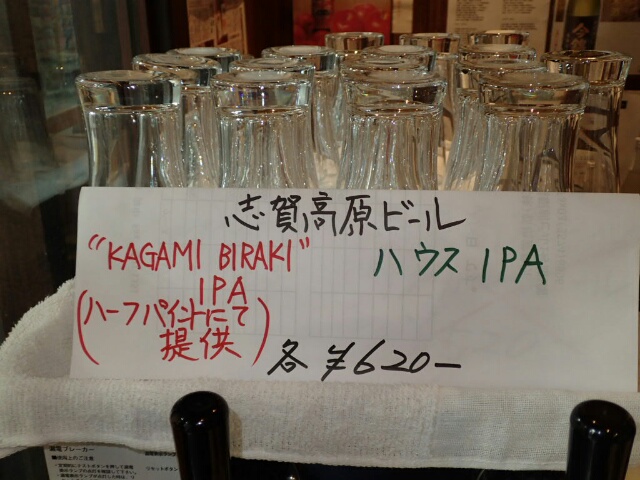 志賀高原ビール
"KAGAMI BIRAKI"
IPA
(ハーフパイントにて
提供)
ハウス IPA
各 ¥620-
漏電ブレーカー